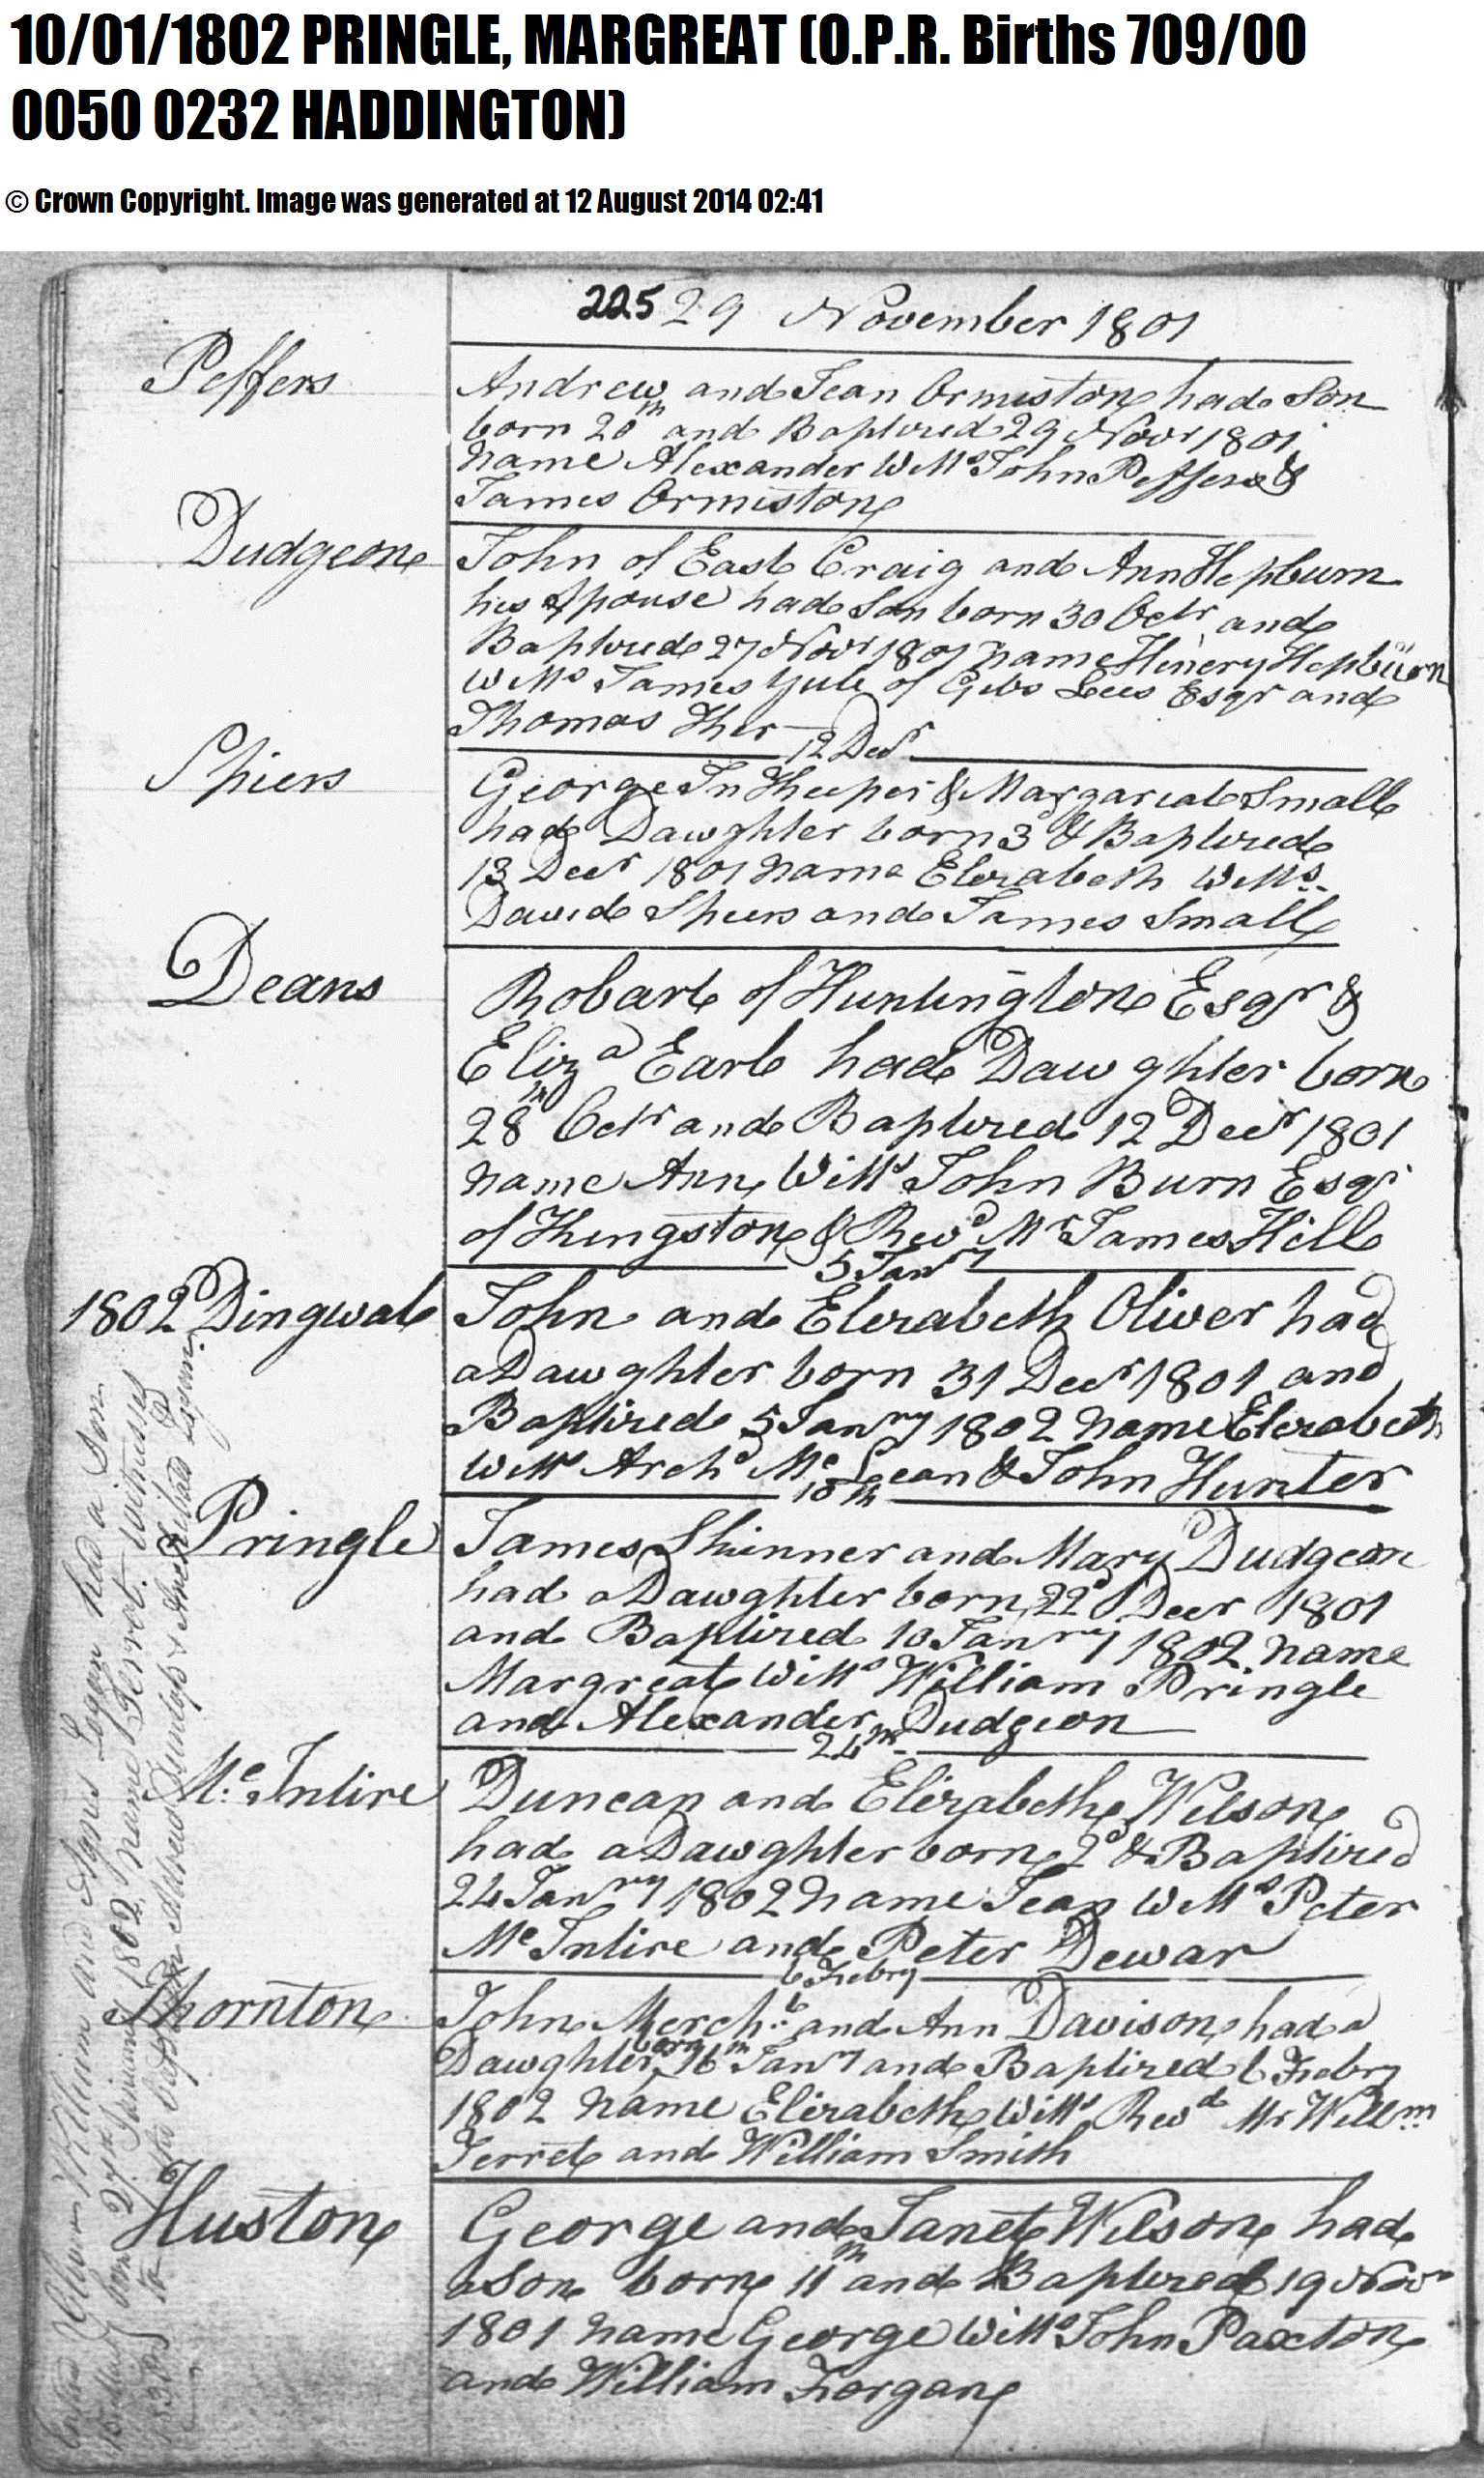 10/01/1802 PRINGLE, MARGREAT (O.P.R. Births 709/00
0050 0232 HADDINGTON)
© Crown Copyright. Image was generated at 12 August 2014 02:41
225 29 November 1801
Peffers
Andrew and Jean Ormiston had Son
born 20th and Baptized 29 Novr 1801
Name Alexander Witts John Peffers &
James Ormiston
Dudgeon
John of East Craig and Ann Hepburn
his Spouse had Son born 30 Octr and
Baptized 27 Novr 1801 Name Hinery Hepburn
Witts James Yule of Gibs Lees Esqr and
Thomas Ker
12 Decr
Spiers
George In Keeper & Margareat Small
had Dawghter born 3d & Baptized
13 Decr 1801 Name Elizabeth Witts
David Spiers and James Small
Deans
Robart of Huntington Esqr &
Eliza Earl had Dawghter born
28th Octr and Baptized 12 Decr 1801
Name Ann Witts John Burn Esqr
of Kingston & Revd Mr James Hill
5 Janry
1802 Dingwal
John and Elizabeth Oliver had
a Dawghter born 31 Decr 1801 and
Baptized 5 Janry 1802 Name Elizabeth
Witts Archd Mc Lean & John Hunter
10th
Pringle
James Skinner and Mary Dudgeon
had a Dawghter born 22d Decr 1801
and Baptized 10 Janry 1802 Name
Margreat Witts William Pringle
and Alexander Dudgeon
24th
Mc Intire
Duncan and Elizabeth Wilson
had a Dawghter born 2d & Baptized
24 Janry 1802 Name Jean Witts Peter
Mc Intire and Peter Dewar
6 Febry
Thornton
John Mercht and Ann Davison had a
Dawghter born 16th Janry and Baptized 6 Febry
1802 Name Elizabeth Witts Revd Mr Willm
Terret and William Smith
Huston
George and Janet Wilson had
a Son born 11th and Baptized 19 Novr
1801 Name George Witts John Paxton
and William Forgan
William and Agnes Logan had a Son
born 27th January 1802 Name witnesses
to the baptism Andrew Dunlop & Archibald